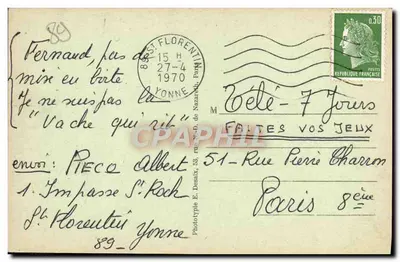 89
Fernaud, pas de
mise en boite
Je ne suis pas la
"Vache qui rit"
envoi: PIECQ Albert
1. Impasse St Roch
St Florentin Yonne
89_
89 ST FLORENTIN
15 H
27-4
1970
YONNE
0,30
REPUBLIQUE FRANÇAISE
Phototypie E. Desaix,
M Télé-7 Jours
FAITES VOS JEUX
51-Rue Pierre Charron
Paris 8ème
CPAPHIL